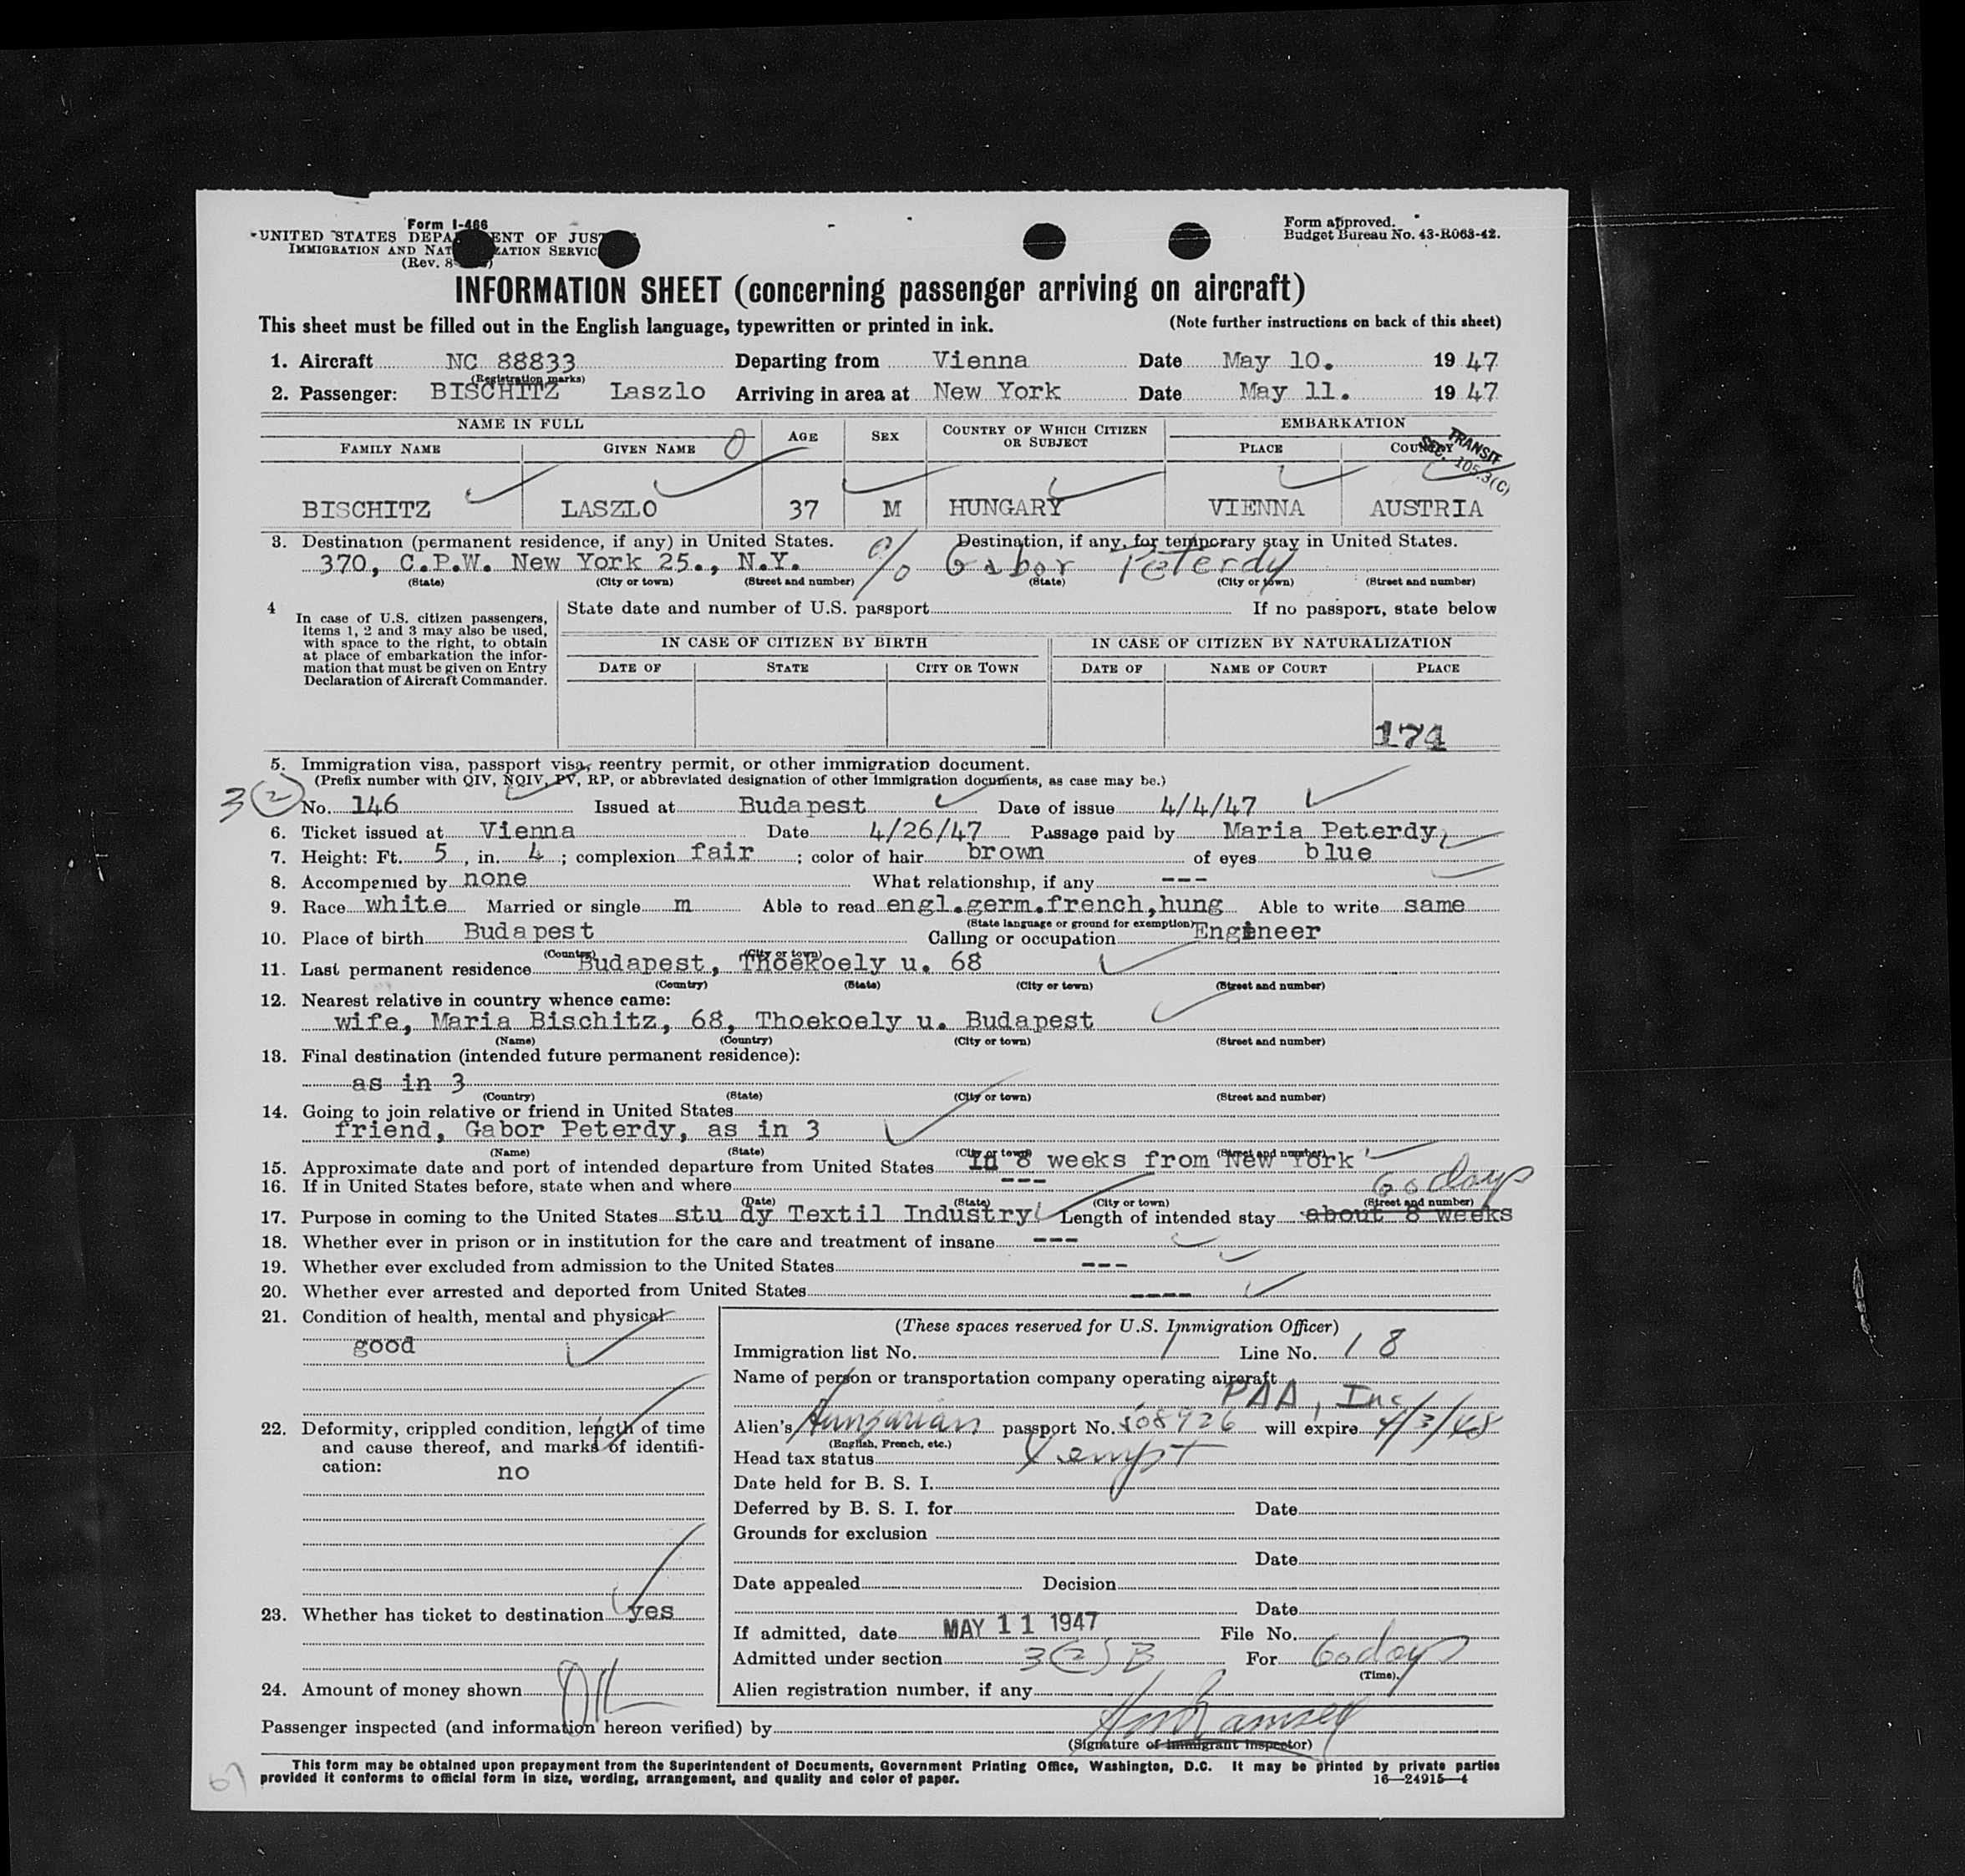 Form I-466
UNITED STATES DEPA ENT OF JUS
IMMIGRATION AND NAT ZATION SERVIC
(Rev. 8- )
Form approved.
Budget Bureau No. 43-R063-42.
INFORMATION SHEET (concerning passenger arriving on aircraft)
This sheet must be filled out in the English language, typewritten or printed in ink. (Note further instructions on back of this sheet)
1. Aircraft NC 88833 Departing from Vienna Date May 10. 19 47
(Registration marks)
2. Passenger: BISCHITZ Laszlo Arriving in area at New York Date May 11. 19 47
NAME IN FULL AGE SEX COUNTRY OF WHICH CITIZEN OR SUBJECT EMBARKATION
FAMILY NAME GIVEN NAME 0 PLACE COUNTRY
TRANSIT
SEC. 105.3(C)
BISCHITZ LASZLO 37 M HUNGARY VIENNA AUSTRIA
3. Destination (permanent residence, if any) in United States. Destination, if any, for temporary stay in United States.
370, C.P.W. New York 25., N.Y. c/o Gabor Peterdy
(State) (City or town) (Street and number) (State) (City or town) (Street and number)
4 In case of U.S. citizen passengers,
items 1, 2 and 3 may also be used,
with space to the right, to obtain
at place of embarkation the infor-
mation that must be given on Entry
Declaration of Aircraft Commander.
State date and number of U.S. passport If no passport, state below
IN CASE OF CITIZEN BY BIRTH IN CASE OF CITIZEN BY NATURALIZATION
DATE OF STATE CITY OR TOWN DATE OF NAME OF COURT PLACE
174
5. Immigration visa, passport visa, reentry permit, or other immigration document.
(Prefix number with QIV, NQIV, PV, RP, or abbreviated designation of other immigration documents, as case may be.)
3(2) No. 146 Issued at Budapest Date of issue 4/4/47
6. Ticket issued at Vienna Date 4/26/47 Passage paid by Maria Peterdy
7. Height: Ft. 5, in. 4; complexion fair; color of hair brown of eyes blue
8. Accompanied by none What relationship, if any ---
9. Race white Married or single m Able to read engl.germ.french,hung Able to write same
(State language or ground for exemption)
10. Place of birth Budapest Calling or occupation Engineer
(Country) (City or town)
11. Last permanent residence Budapest, Thoekoely u. 68
(Country) (State) (City or town) (Street and number)
12. Nearest relative in country whence came:
wife, Maria Bischitz, 68, Thoekoely u. Budapest
(Name) (Country) (City or town) (Street and number)
13. Final destination (intended future permanent residence):
as in 3
(Country) (State) (City or town) (Street and number)
14. Going to join relative or friend in United States
friend, Gabor Peterdy, as in 3
(Name) (State) (City or town) (Street and number)
15. Approximate date and port of intended departure from United States In 8 weeks from New York
16. If in United States before, state when and where --- 60 days
(Date) (State) (City or town) (Street and number)
17. Purpose in coming to the United States stu dy Textil Industry Length of intended stay about 8 weeks
18. Whether ever in prison or in institution for the care and treatment of insane ---
19. Whether ever excluded from admission to the United States ---
20. Whether ever arrested and deported from United States ----
21. Condition of health, mental and physical
good
22. Deformity, crippled condition, length of time
and cause thereof, and marks of identifi-
cation: no
23. Whether has ticket to destination yes
24. Amount of money shown OK
(These spaces reserved for U.S. Immigration Officer)
Immigration list No. 1 Line No. 18
Name of person or transportation company operating aircraft
PAA, Inc
Alien's Hungarian passport No. 108926 will expire 4/3/48
(English, French, etc.)
Head tax status Xempt
Date held for B. S. I.
Deferred by B. S. I. for Date
Grounds for exclusion
Date
Date appealed Decision
Date
If admitted, date MAY 11 1947 File No.
Admitted under section 3(2)B For 60 days
(Time)
Alien registration number, if any
Passenger inspected (and information hereon verified) by
(Signature of immigrant inspector)
This form may be obtained upon prepayment from the Superintendent of Documents, Government Printing Office, Washington, D.C. It may be printed by private parties
provided it conforms to official form in size, wording, arrangement, and quality and color of paper. 16—24915-4